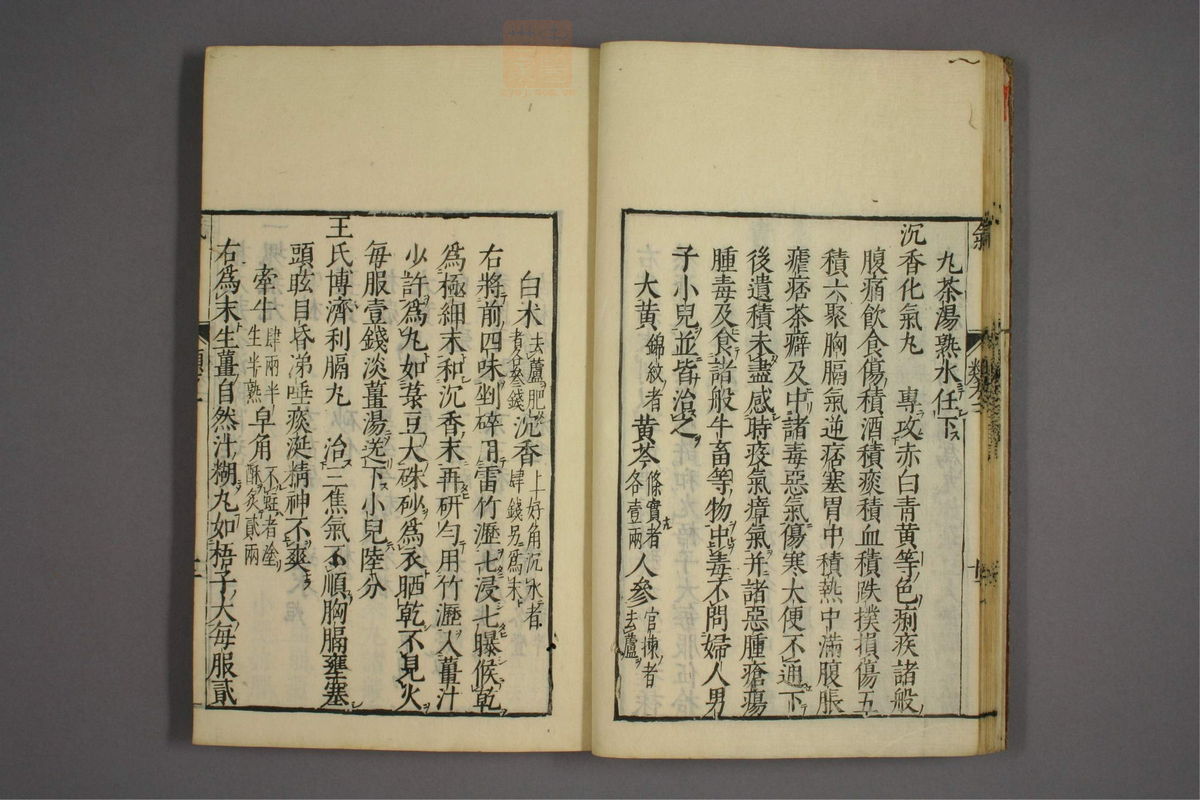 九茶湯熟水任下
沉香化氣丸　專攻赤白青黃等色痢疾諸般
腹痛飲食傷積酒積痰積血積跌撲損傷五
積六聚胸膈氣逆痞塞胃中積熱中滿腹脹
瘧痞茶癖及中諸毒惡氣傷寒大便不通下
後遺積未盡感時疫氣瘴氣并諸惡腫瘡瘍
腫毒及食諸般牛畜等物中毒不問婦人男
子小兒並皆治之
大黃錦紋者黃芩條實者各壹兩人參官揀者去蘆
白术去蘆肥者各叄錢沉香上好角沉水者肆錢另爲末
右將前四味剉碎用雷竹瀝七浸七曝候乾
爲極細末和沉香末再研勻用竹瀝入薑汁
少許爲丸如菉豆大硃砂爲衣晒乾不見火
每服壹錢淡薑湯送下小兒陸分
王氏博濟利膈丸　治三焦氣不順胸膈壅塞
頭眩目昏涕唾痰涎精神不爽
牽牛肆兩半生半熟皁角不蛀者塗酥炙貳兩
右爲末生薑自然汁糊丸如梧子大每服貳